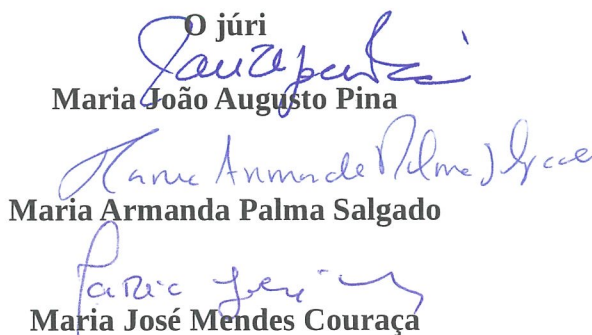 O júri
Maria João Augusto Pina
Maria Armanda Palma Salgado
Maria Armanda Palma Salgado
Maria José Mendes Couraça